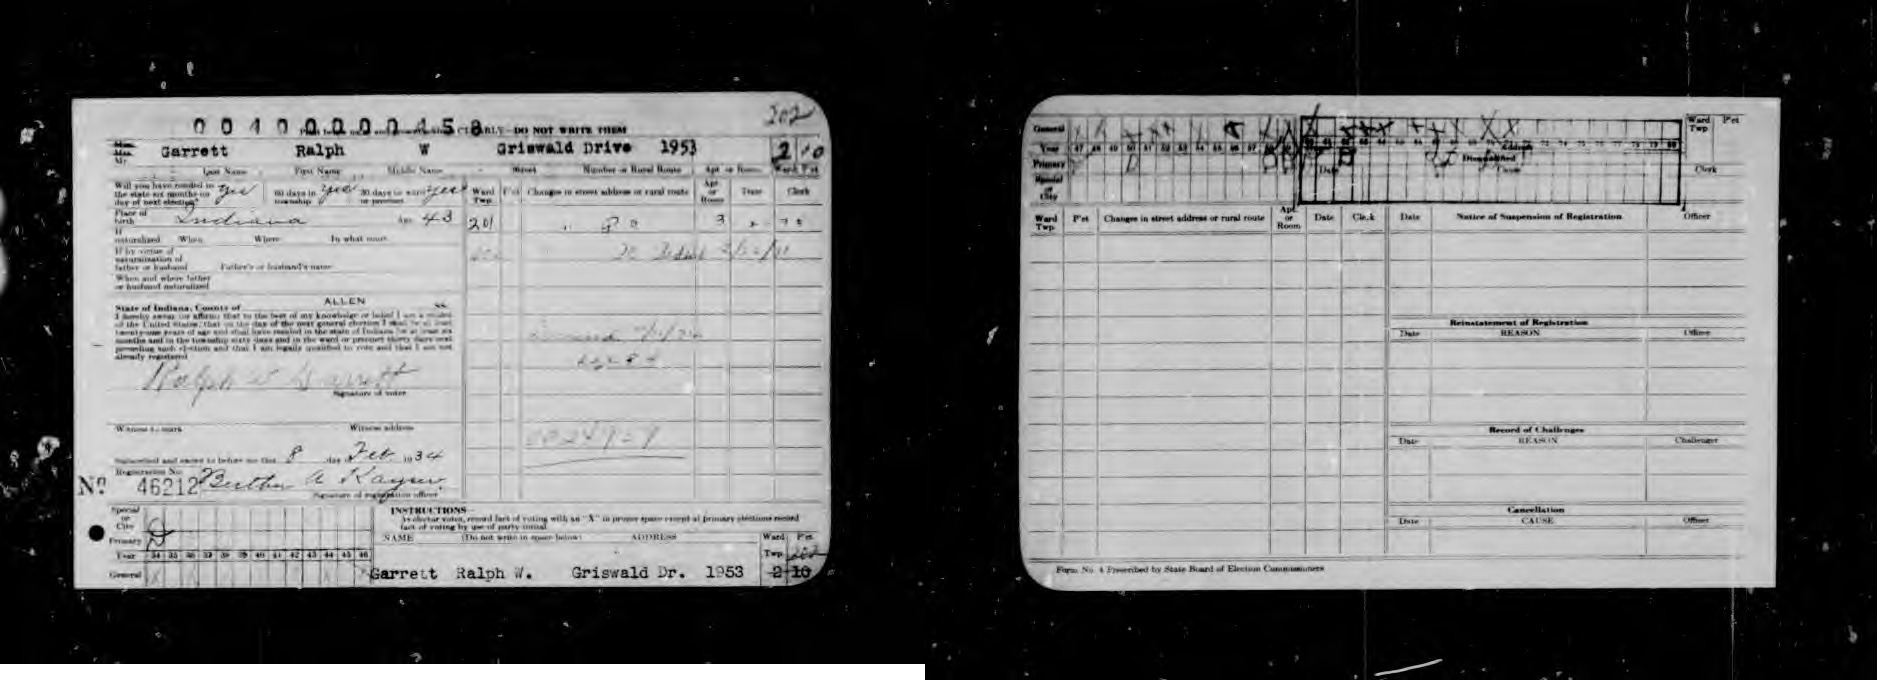 202
0040000458
CLEARLY—DO NOT WRITE THEM
Garrett Ralph W Griswald Drive 1953 2 10
Last Name First Name Middle Name Street Number or Rural Route Apt. or Room Ward P'ct
Will you have resided in the state six months on day of next election? yes 60 days in township yes 30 days in ward or precinct yes
Place of birth Indiana Age 43
If naturalized When Where In what court
If by virtue of naturalization of father or husband Father's or husband's name
When and where father or husband naturalized
State of Indiana, County of ALLEN ss.
I hereby swear (or affirm) that to the best of my knowledge or belief I am a citizen
of the United States; that on the day of the next general election I shall be at least
twenty-one years of age and shall have resided in the state of Indiana for at least six
months and in the township sixty days and in the ward or precinct thirty days next
preceding such election and that I am legally qualified to vote and that I am not
already registered
Ralph W Garrett
Signature of voter
Witness to mark Witness address
Subscribed and sworn to before me this 8 day Feb 1934
Registration No.
No 46212 Bertha A Kayser
Signature of registration officer
Ward Twp. P'ct Changes in street address or rural route Apt. or Room Date Clerk
201 3
Special or City
Primary D
Year 34 35 36 37 38 39 40 41 42 43 44 45 46
General X
INSTRUCTIONS
As elector votes, record fact of voting with an "X" in proper space except at primary elections record
fact of voting by use of party initial
NAME (Do not write in space below) ADDRESS Ward Twp. P'ct
202
Garrett Ralph W. Griswald Dr. 1953 2 10
General
Year 47 48 49 50 51 52 53 54 55 56 57
Primary
Special or City
Disqualified
Date Cause
Ward Twp P'ct
Clerk
Ward Twp. P'ct Changes in street address or rural route Apt. or Room Date Clerk
Date Notice of Suspension of Registration Officer
Reinstatement of Registration
Date REASON Officer
Record of Challenges
Date REASON Challenger
Cancellation
Date CAUSE Officer
Form No. 4 Prescribed by State Board of Election Commissioners